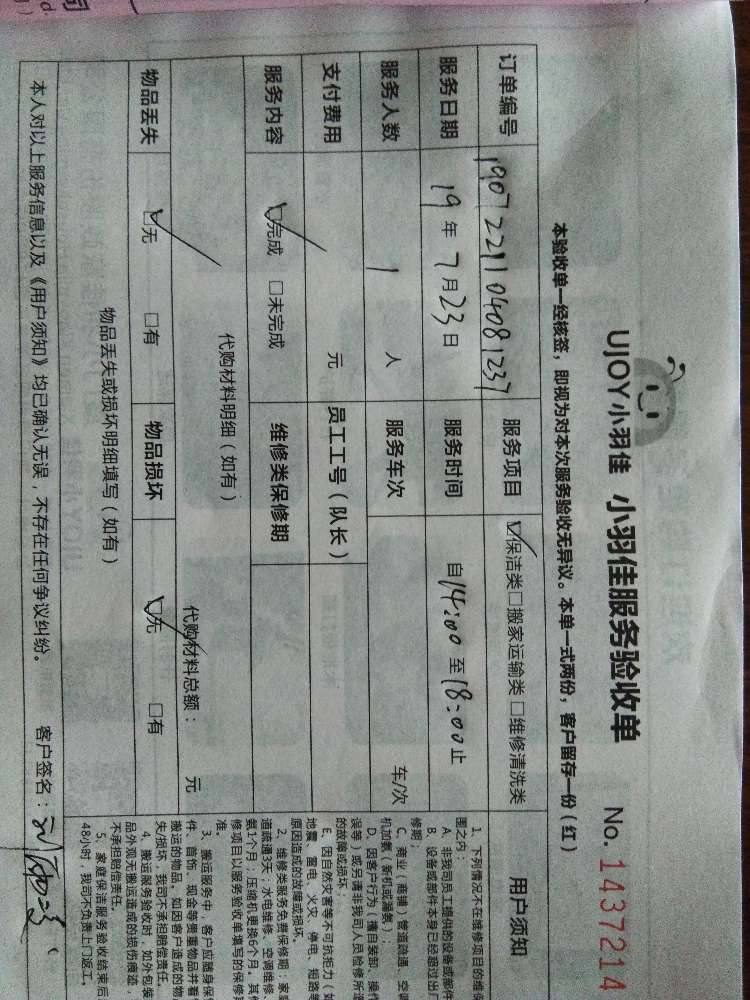 UJOY小羽佳 小羽佳服务验收单 No. 1437214
本验收单一经核签，即视为对本次服务验收无异议。本单一式两份，客户留存一份（红）
订单编号 190722110408 1237 服务项目 ☑保洁类□搬家运输类 □维修清洗类 用户须知
服务日期 19年7月23日 服务时间 自14:00至18:00止
服务人数 1 人 服务车次 车/次
支付费用 元 员工工号（队长）
服务内容 ☑完成 □未完成 维修类保修期
代购材料明细（如有） 代购材料总额： 元
物品丢失 ☑无 □有 物品损坏 ☑无 □有
物品丢失或损坏明细填写（如有）
本人对以上服务信息以及《用户须知》均已确认无误，不存在任何争议纠纷。 客户签名：
1、下列情况不在维修项目的维保
围之内：
A、非我司员工提供的设备或部件
B、设备或部件本身已经超过出厂
修期；
C、商业（商铺）管道疏通、空调
机加氨（新机或漏氨）；
D、因客户行为（擅自装卸、操作
误等）或另请非我司人员检修所造
的故障或损坏；
E、因自然灾害等不可抗拒力（如
地震、雷电、火灾、停电、短路等
原因造成的故障或损坏。
2、维修类服务免费保修期：家庭
道疏通3天；水电维修、空调维修
氨1个月；压缩机更换6个月。其他
修项目以服务验收单填写的保修期
准。
3、搬运服务中，客户应随身保
件、首饰、现金等贵重物品并看
搬运的物品。如因客户造成的物
失/损坏，我司不承担赔偿责任。
4、搬运服务验收时，如外包装
品外观无搬运造成的损伤痕迹，
不承担赔偿责任。
5、家庭保洁服务验收结束后
48小时，我司不负责上门返工。